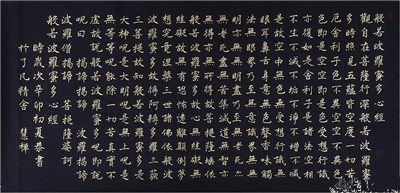 般若波羅蜜多心經
觀自在菩薩行深般若波羅蜜
多時照見五蘊皆空度一切苦
厄舍利子色不異空空不異色
色即是空空即是色受想行識
亦復如是舍利子是諸法空相
不生不滅不垢不淨不增不減
是故空中無色無受想行識無
眼耳鼻舌身意無色聲香味觸
法無眼界乃至無意識界無無
明亦無無明盡乃至無老死亦
無老死盡無苦集滅道無智亦
無得以無所得故菩提薩埵依
般若波羅蜜多故心無罣礙無
罣礙故無有恐怖遠離顛倒夢
想究竟涅槃三世諸佛依般若
波羅蜜多故得阿耨多羅三藐
三菩提故知般若波羅蜜多是
大神咒是大明咒是無上咒是
無等等咒能除一切苦真實不
虛故說般若波羅蜜多咒即說
咒曰 揭諦揭諦 波羅揭諦
波羅僧揭諦 菩提薩婆訶
般若波羅蜜多心經
時歲次辛卯初夏恭書
於了凡精舍